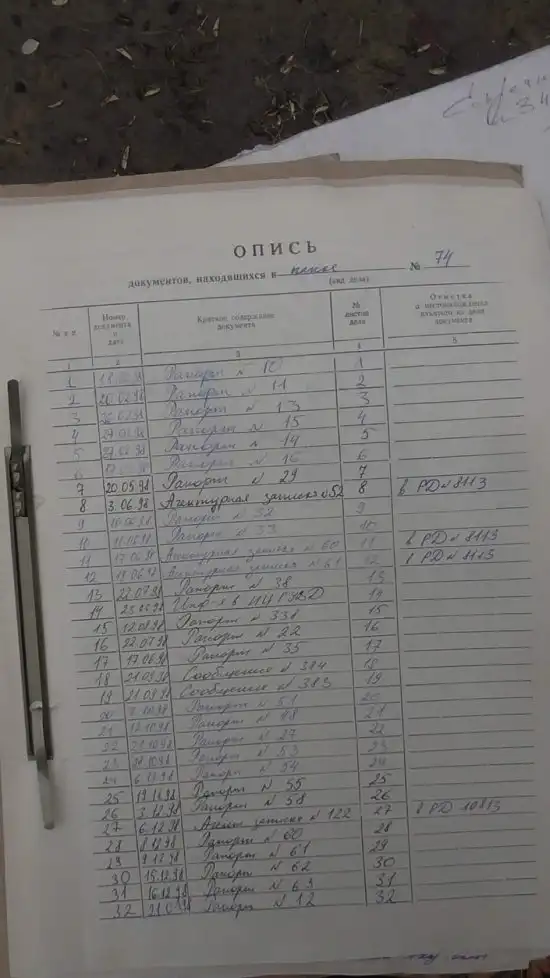 ОПИСЬ
документов, находящихся в папке № 74
(вид дела)
№ п.п. Номер документа и дата Краткое содержание документа № листов дела Отметка о местонахождении изъятого из дела документа
1 2 3 4 5
1 Рапорт № 10 1
2 20.02.98 Рапорт № 11 2
3 Рапорт № 13 3
4 Рапорт № 15 4
5 Рапорт № 14 5
6 Рапорт № 16 6
7 20.05.98 Рапорт № 29 7
8 3.06.98 Агентурная записка №52 8 в РД № 8113
9 10.06.98 Рапорт № 32 9
10 11.06.98 Рапорт № 33 10
11 17.06.98 Агентурная записка № 60 11 в РД № 8113
12 Агентурная записка № 61 12 в РД № 8113
13 22.07.98 Рапорт № 38 13
14 14
15 12.08.98 Рапорт № 338 15
16 22.07.98 Рапорт № 22 16
17 17.06.98 Рапорт № 35 17
18 21.09.98 Сообщение № 384 18
19 21.09.98 Сообщение № 383 19
20 Рапорт № 51 20
21 12.10.98 Рапорт № 48 21
22 Рапорт № 27 22
23 Рапорт № 53 23
24 Рапорт № 54 24
25 Рапорт № 55 25
26 3.12.98 Рапорт № 58 26
27 6.12.98 Агент записка № 122 27 в РД 10813
28 8.12.98 Рапорт № 60 28
29 9.12.98 Рапорт № 61 29
30 15.12.98 Рапорт № 62 30
31 16.12.98 Рапорт № 63 31
32 Рапорт № 12 32